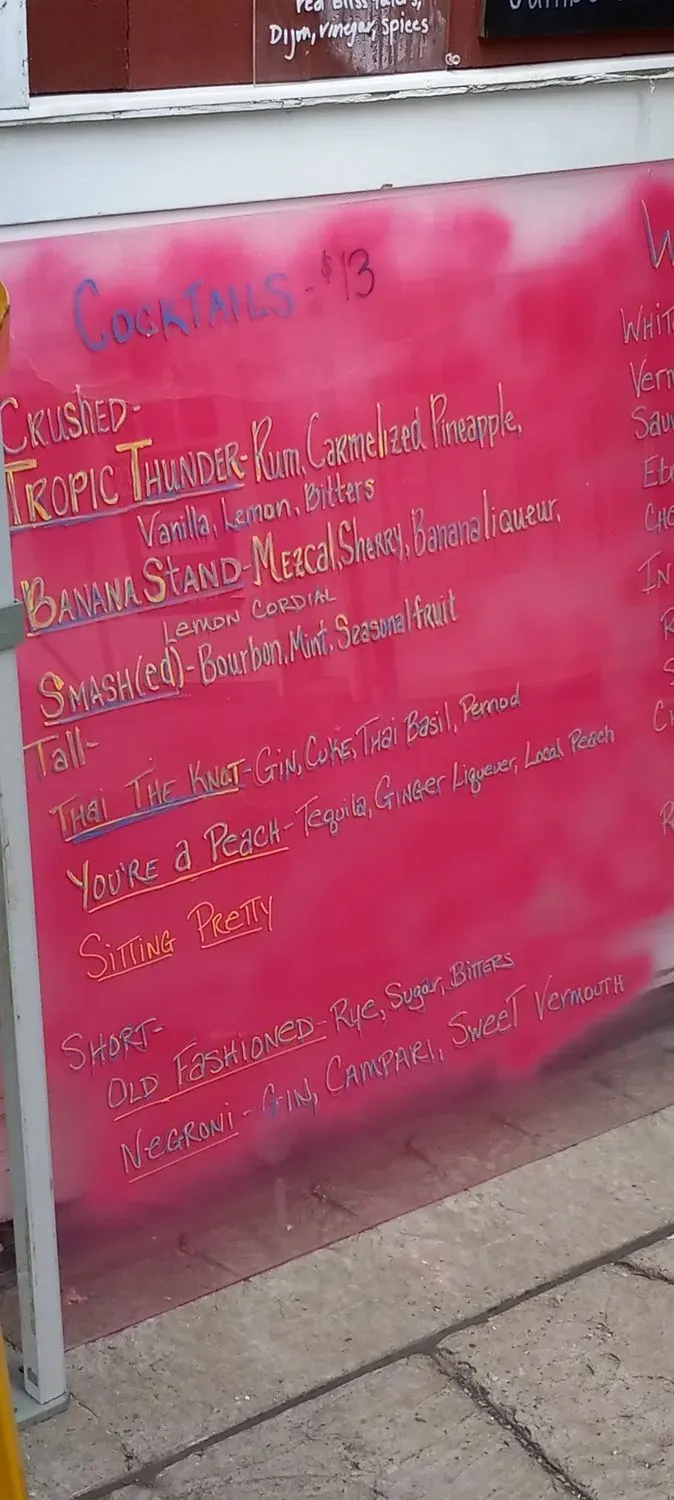 Red Bliss
Dijm, vinegar, spices
COCKTAILS - $13
CRUSHED-
TROPIC THUNDER- Rum, Carmelized Pineapple,
Vanilla, Lemon, Bitters
BANANA STAND- Mezcal, Sherry, Banana liqueur,
Lemon CORDIAL
SMASH(ed)- Bourbon, Mint, Seasonal fruit
Tall-
THAI THE KNOT- Gin, Cuke, Thai Basil, Pernod
YOU'RE a PEACH- Tequila, GINGER Liqueuer, Local Peach
SITTING PRETTY
SHORT-
OLD FASHIONED- Rye, Sugar, BITTERS
NEGRONI - GIN, CAMPARI, SWEET VERMOUTH
W
WHITE
Verm
Sau
CHE
IN